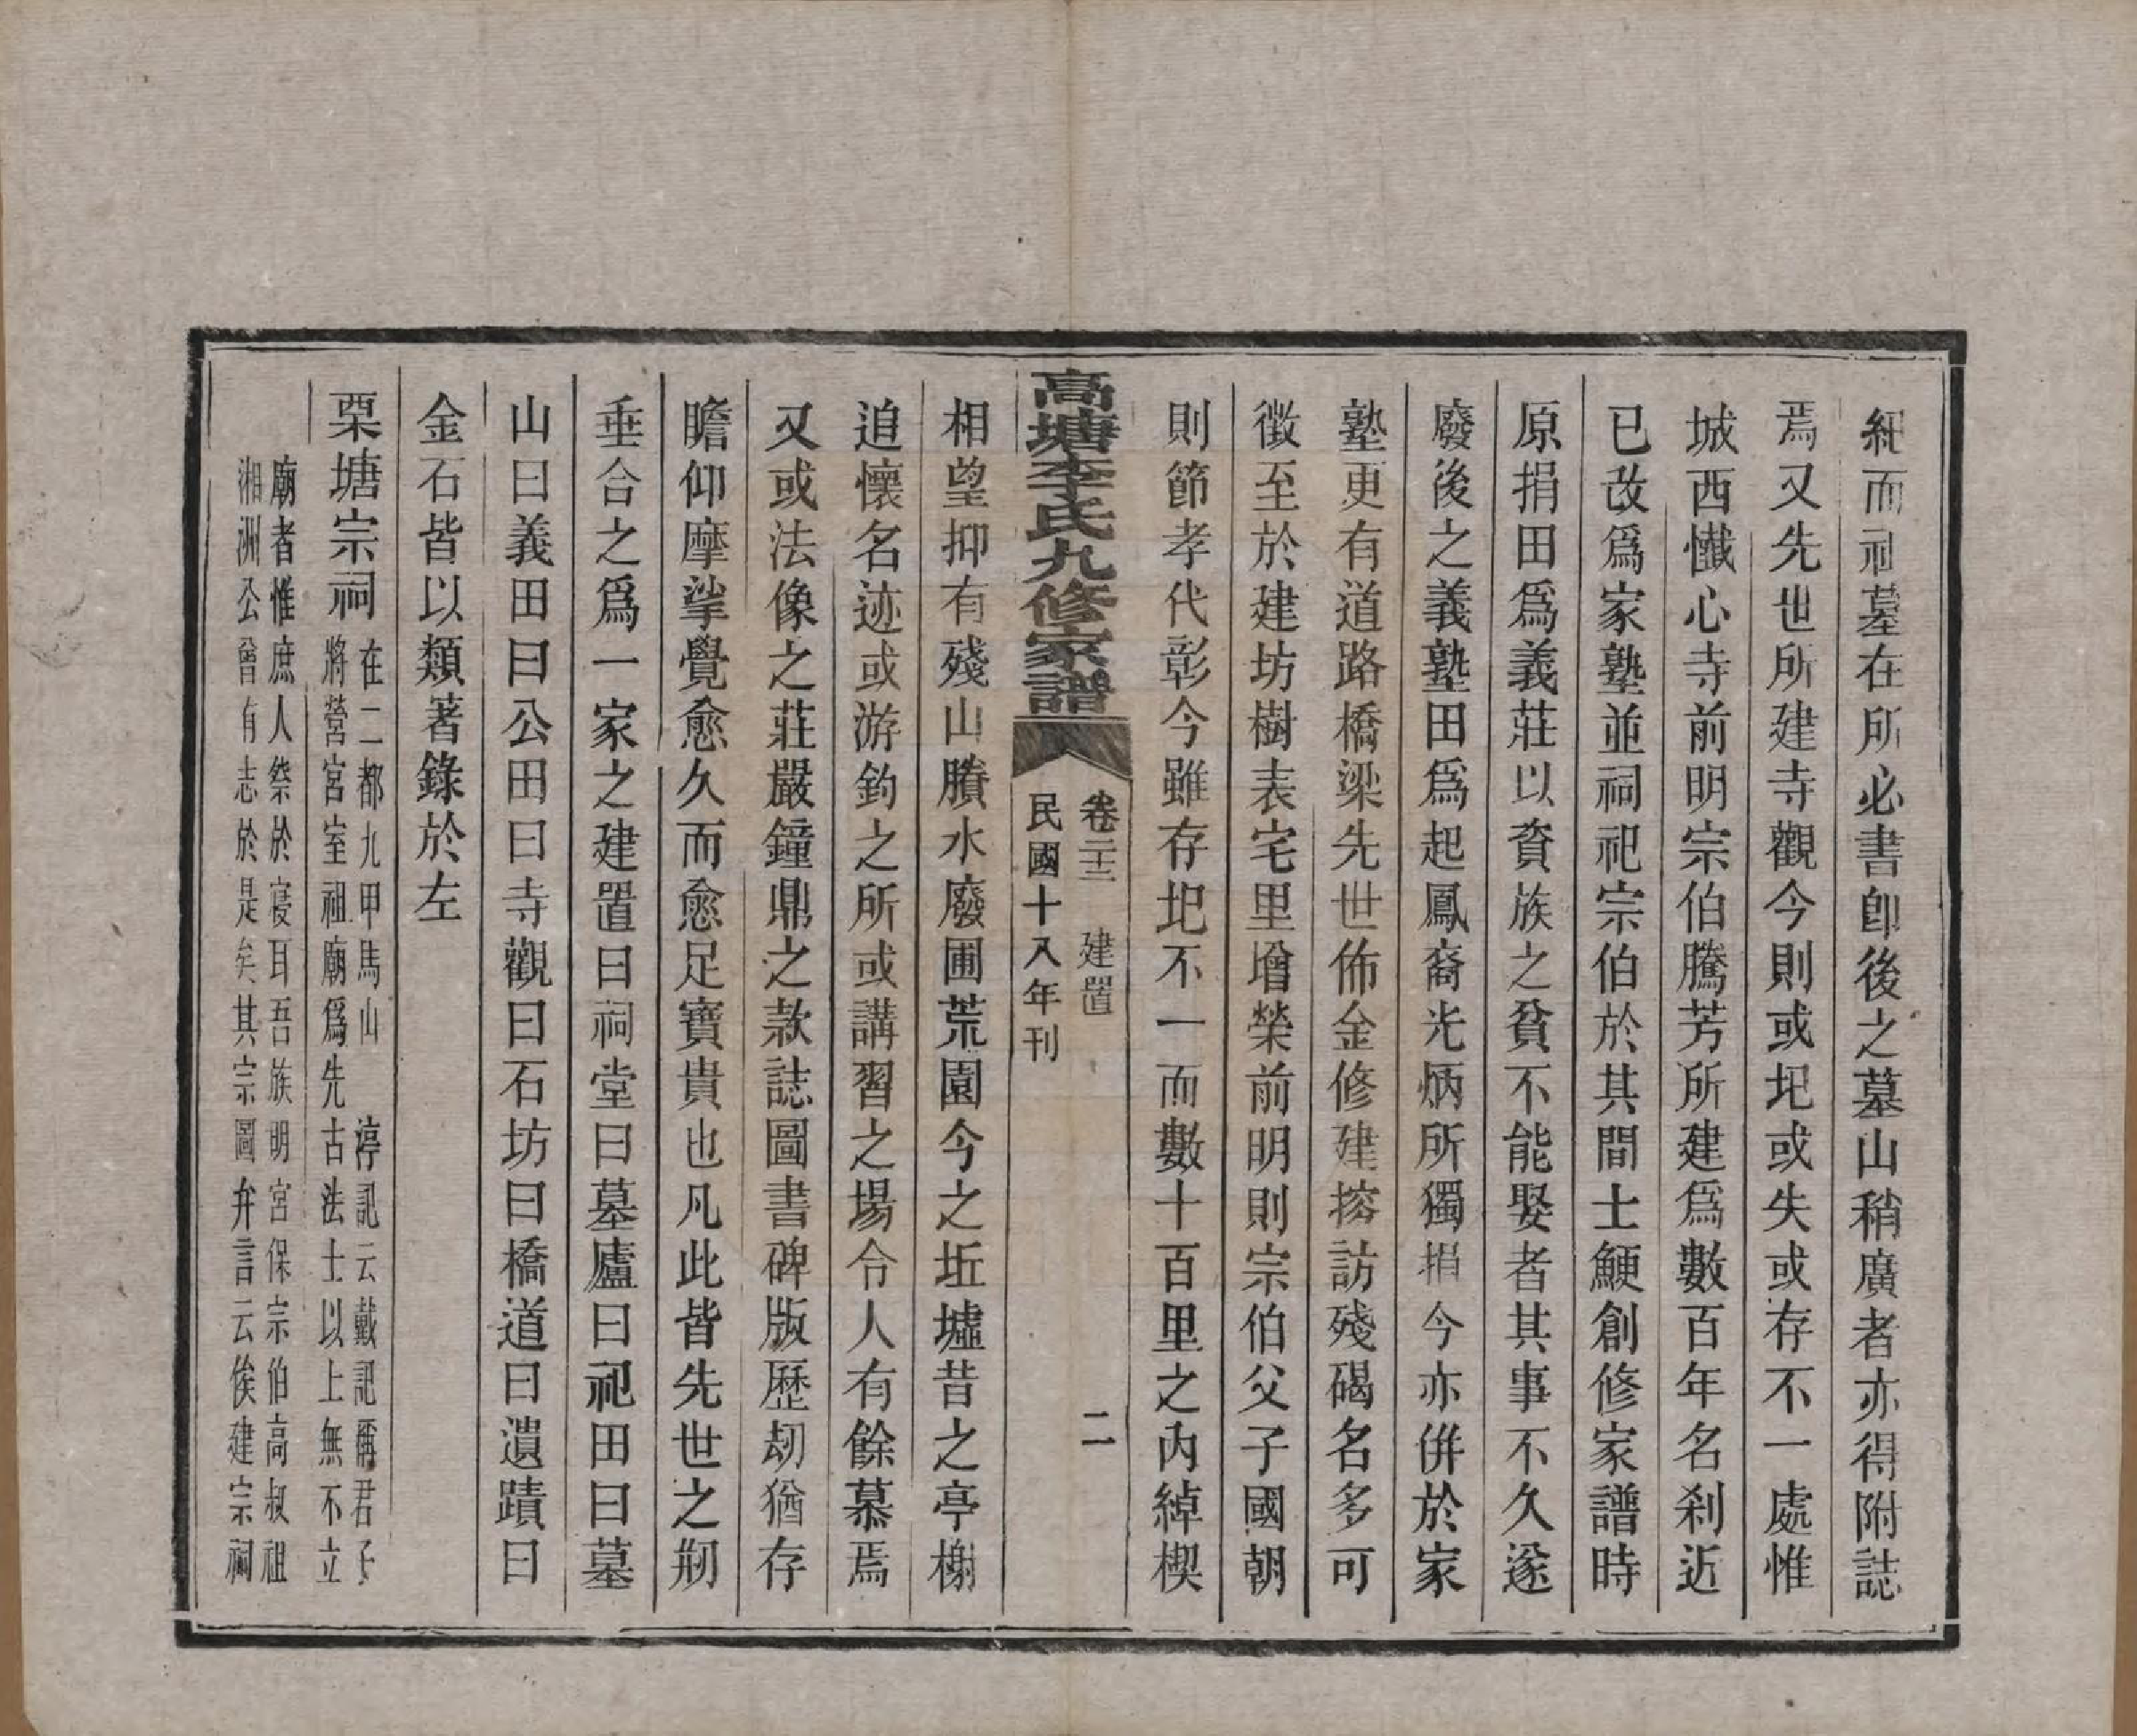 細而祠墓在所必書卽後之墓山稍廣者亦得附誌
焉又先世所建寺觀今則或圯或失或存不一處惟
城西懺心寺前明宗伯騰芳所建爲數百年名刹近
已改爲家塾並祠祀宗伯於其間士鯁創修家譜時
原捐田爲義莊以資族之貧不能娶者其事不久遂
廢後之義塾田爲起鳳裔光炳所獨捐今亦併於家
塾更有道路橋梁先世佈金修建搜訪殘碣名多可
徵至於建坊樹表宅里增榮前明則宗伯父子國朝
則節孝代彰今雖存圯不一而數十百里之內綽楔
高塘李氏九修家譜
卷二十二 建置
二
民國十八年刊
相望抑有殘山賸水廢圃荒園今之坵墟昔之亭榭
追懷名迹或游釣之所或講習之場令人有餘慕焉
又或法像之莊嚴鐘鼎之款誌圖書碑版歷刼猶存
瞻仰摩挲覺愈久而愈足寶貴也凡此皆先世之剏
垂合之爲一家之建置曰祠堂曰墓廬曰祀田曰墓
山曰義田曰公田曰寺觀曰石坊曰橋道曰遺蹟曰
金石皆以類著錄於左
栗塘宗祠
在二都九甲馬山 渟記云戴記稱君子
將營宮室祖廟爲先古法士以上無不立
廟者惟庶人祭於寢耳吾族明宮保宗伯高叔祖
湘洲公曾有志於是矣其宗圖弁言云俟建宗祠